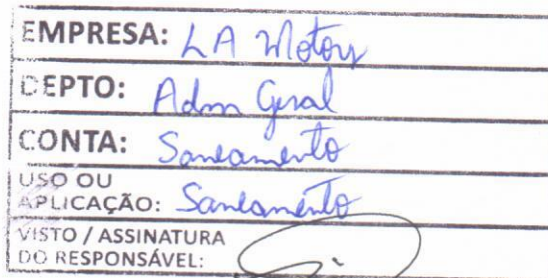 EMPRESA: LA Motors
DEPTO: Adm Geral
CONTA: Saneamento
USO OU
APLICAÇÃO: Saneamento
VISTO / ASSINATURA
DO RESPONSÁVEL: